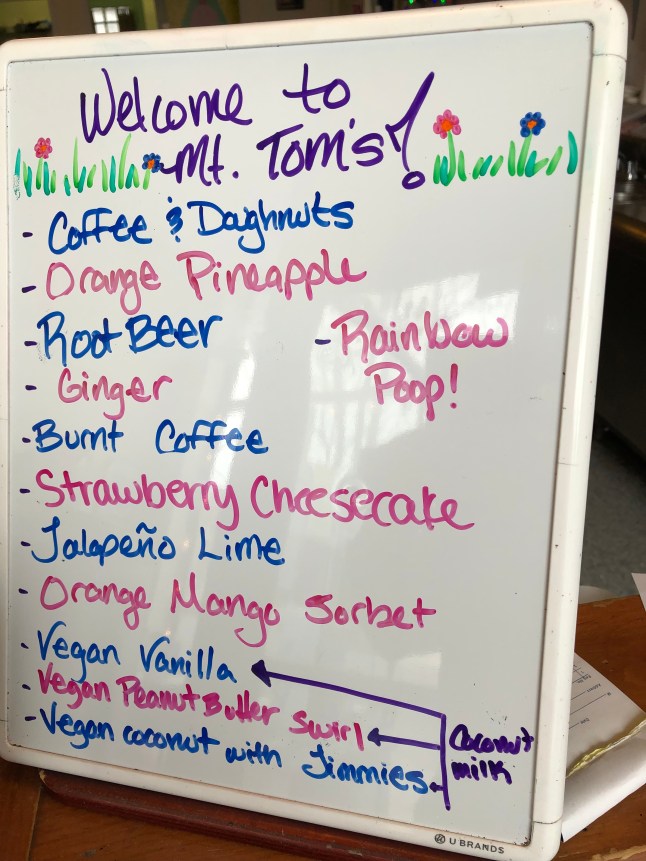 Welcome to
Mt. Tom's!
- Coffee & Doughnuts
- Orange Pineapple
- Root Beer
- Ginger
- Burnt Coffee
- Strawberry Cheesecake
- Jalapeño Lime
- Orange Mango Sorbet
- Vegan Vanilla
- Vegan Peanut Butter Swirl
- Vegan coconut with Jimmies
- Rainbow
Poop!
Coconut
milk
U BRANDS